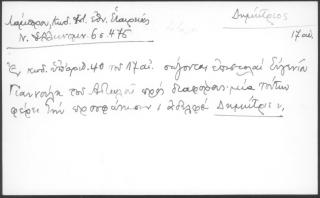 Λάμπρου, Κωδ. Βιβλ. Εθν. Εταιρείας
Δημήτριος
Ν. Ἑλληνομν. 6 σ 475
17 αἰ.
Ἐν κώδ. ὑπ' ἀριθ. 40 τοῦ 17 αἰ. σώζονται ἐπιστολαὶ Εὐγενίου
Γιαννούλη τοῦ Αἰτωλοῦ πρὸς διαφόρους· μία τούτων
φέρει τὴν προσφώνησιν, ἀδελφὲ Δημήτριε,